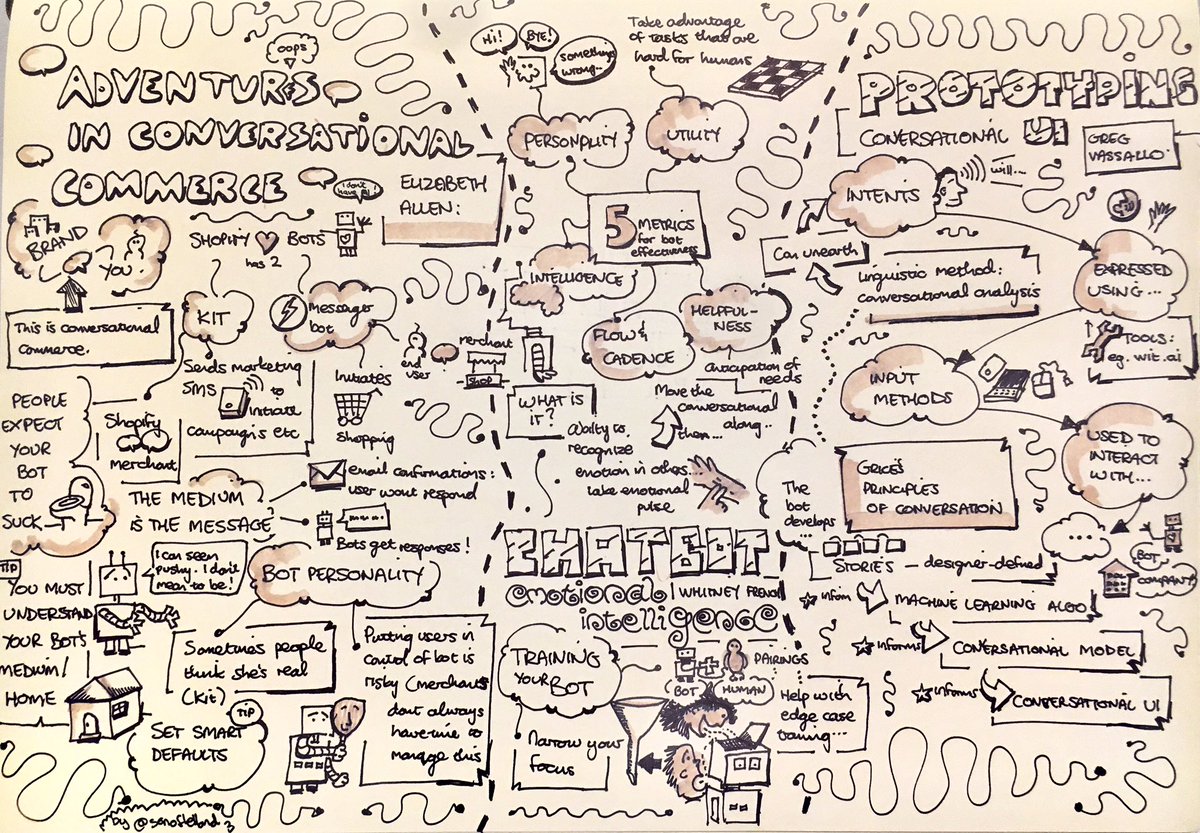 oops
ADVENTURES
IN CONVERSATIONAL
COMMERCE
I don't
have AI!
ELIZABETH
ALLEN:
BRAND
YOU
SHOPIFY BOTS
has 2
This is conversational
commerce.
KIT
Messenger
bot
end
user
merchant
SHOP
Sends marketing
SMS to
initiate
campaigns etc
Initiates
shopping
PEOPLE
EXPECT
YOUR
BOT
TO
SUCK
Shopify
merchant
THE MEDIUM
IS THE MESSAGE
email confirmations:
user wont respond
Bots get responses!
TIP
YOU MUST
UNDERSTAND
YOUR BOT'S
MEDIUM/
HOME
I can seem
pushy. I don't
mean to be!
BOT PERSONALITY
Sometimes people
think she's real
(Kit)
Putting users in
control of bot is
risky (merchants
dont always
have time to
manage this
TIP
SET SMART
DEFAULTS
Hi!
BYE!
Something's
wrong...
Take advantage
of tasks that are
hard for humans
PERSONALITY
UTILITY
5 METRICS
for bot
effectiveness
INTELLIGENCE
FLOW &
CADENCE
HELPFUL-
NESS
anticipation of
needs
Move the
conversational
along..
then...
WHAT IS
IT?
Ability to
recognize
emotion in others...
take emotional
pulse
CHATBOT
emotional
intelligence
WHITNEY FRENCH
TRAINING
YOUR BOT
Narrow your
focus
PAIRINGS
BOT
HUMAN
Help with
edge case
training...
The
bot
develops
...
PROTOTYPING
CONVERSATIONAL UI
GREG
VASSALLO
INTENTS
will...
Can unearth
linguistic method:
conversational analysis
EXPRESSED
USING...
TOOLS:
eg. wit.ai
INPUT
METHODS
USED TO
INTERACT
WITH...
GRICE'S
PRINCIPLES
OF CONVERSATION
...
BOT
COMPANY
STORIES - designer-defined
inform
MACHINE LEARNING ALGO
informs
CONVERSATIONAL MODEL
informs
CONVERSATIONAL UI